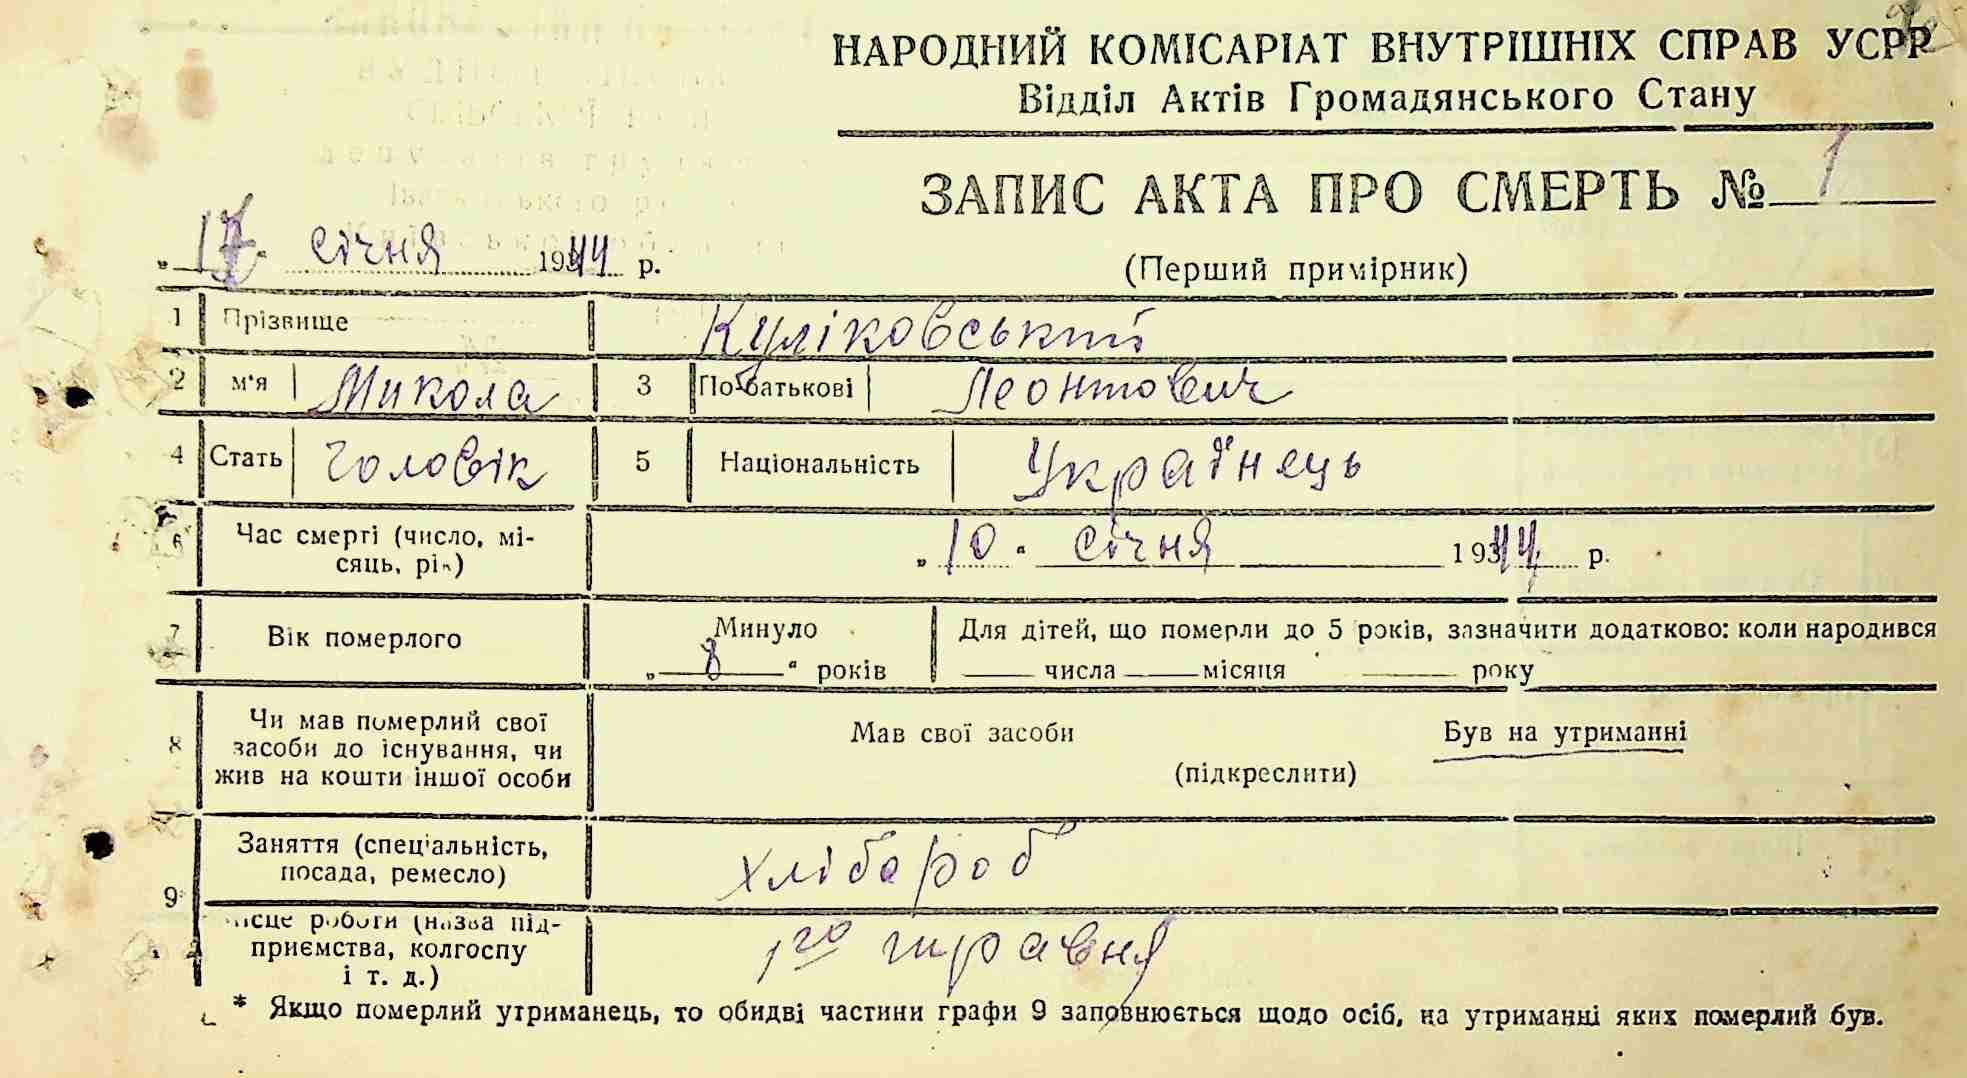 НАРОДНИЙ КОМІСАРІАТ ВНУТРІШНІХ СПРАВ УСРР
Відділ Актів Громадянського Стану
ЗАПИС АКТА ПРО СМЕРТЬ № 1
„17“ січня 1944 р.
(Перший примірник)
1 Прізвище Куліковський
2 м'я Микола 3 По батькові Леонтович
4 Стать чоловік 5 Національність Українець
6 Час смерті (число, мі-
сяць, рік) „10“ січня 1944 р.
7 Вік померлого Минуло „8“ років Для дітей, що померли до 5 років, зазначити додатково: коли народився
числа місяця року
8 Чи мав померлий свої
засоби до існування, чи
жив на кошти іншої особи
Мав свої засоби Був на утриманні
(підкреслити)
9 Заняття (спеціальність,
посада, ремесло) хлібороб
місце роботи (назва під-
приємства, колгоспу
і т. д.) 1го травня
* Якщо померлий утриманець, то обидві частини графи 9 заповнюється щодо осіб, на утриманні яких померлий був.